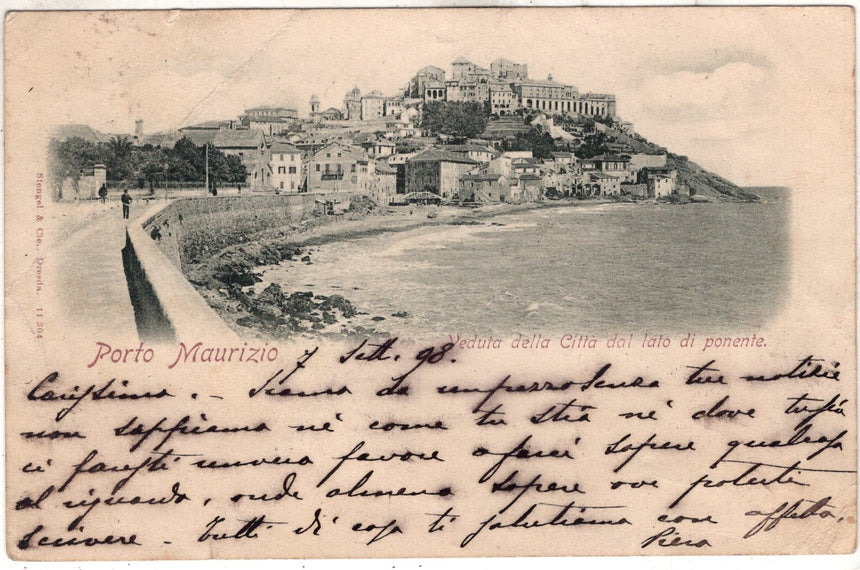 Stengel & Cie., Dresda. 11 304
Porto Maurizio
Veduta della Città dal lato di ponente.
7 Sett. 98.
Carissimo. - Siamo da un pezzo senza tue notizie
non sappiamo nè come tu stia nè dove tu sia
ci faresti un vero favore a farci sapere qualcosa
al riguardo, onde almeno sapere ove poterti
scrivere - Tutti di casa ti salutiamo con affetto,
Piero